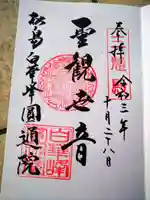 奉拝 令和三年
十月二十八日
聖觀世音
松島 白華峰 圓通院
白華峰